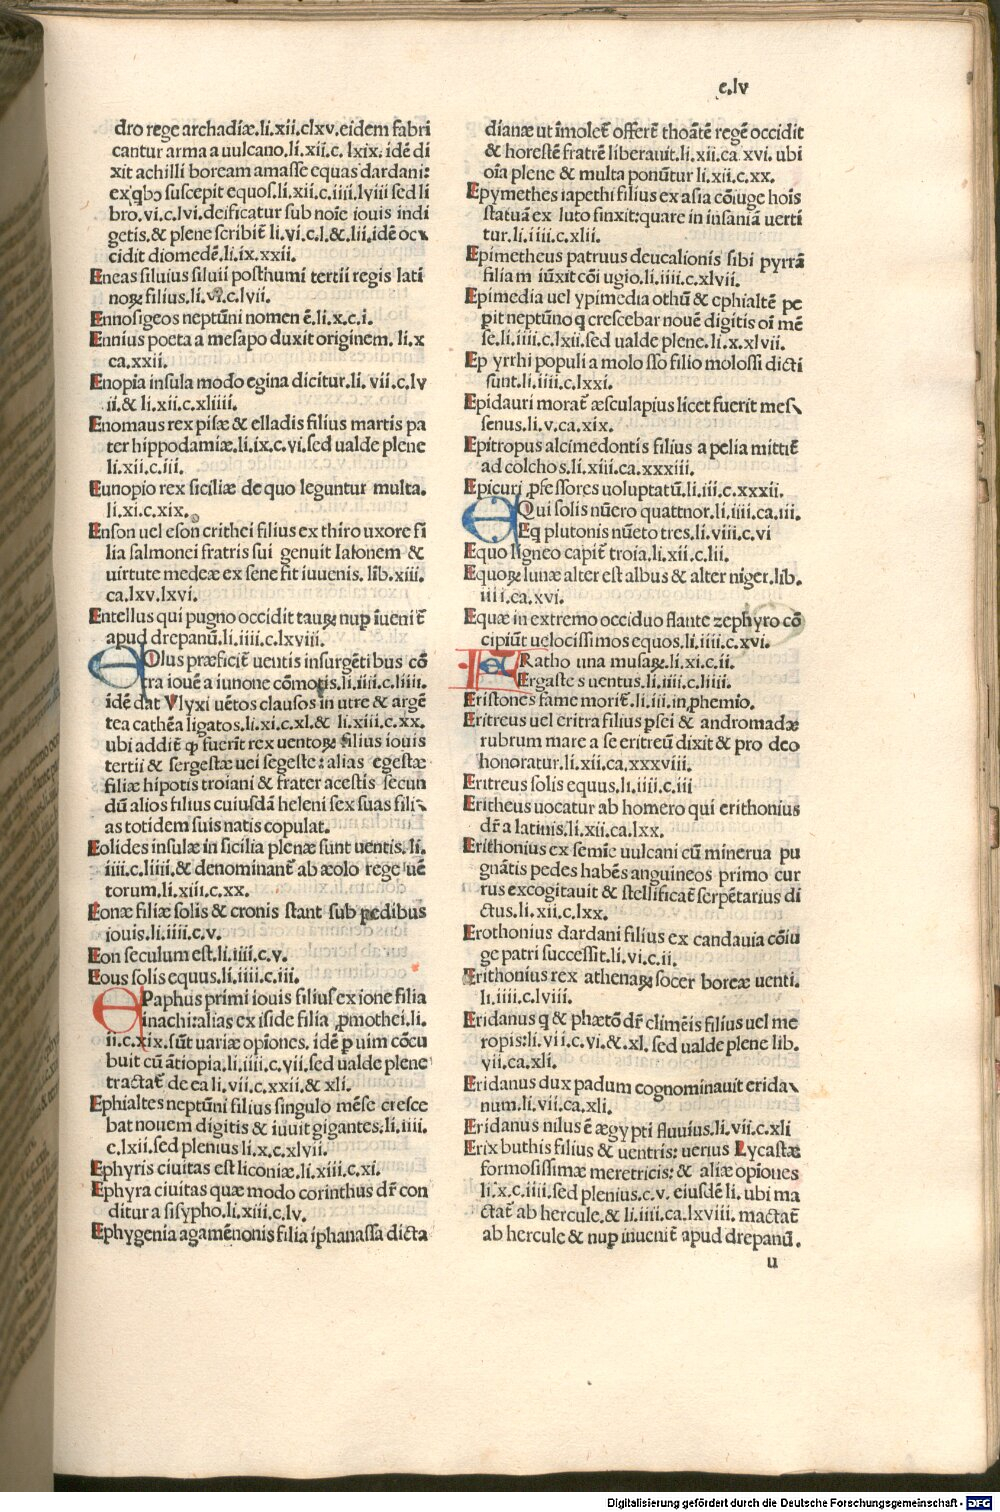 c.lv
dro rege archadiæ.li.xii.clxv.eidem fabri
cantur arma a uulcano.li.xii.c.lxix.idē di
xit achilli boream amasse equas dardani:
ex qbꝰ suscepit equos.li.xii.c.iiii.lviii sed li
bro.vi.c.lvi.deificatur sub noīe iouis indi
getis.& plene scribit̄ li.vi.c.l.&.lii.idē oc
cidit diomedē.li.ix.xxii.
Eneas siluius siluii posthumi tertii regis lati
noꝝ filius.li.vi.c.lvii.
Ennosigeos neptūni nomen ē.li.x.c.i.
Ennius poeta a mesapo duxit originem. li.x
ca.xxii.
Enopia insula modo egina dicitur.li. vii.c.lv
ii.& li.xii.c.xliiii.
Enomaus rex pisæ & elladis filius martis pa
ter hippodamiæ.li.ix.c.vi.sed ualde plene
li.xii.c.iii.
Eunopio rex siciliæ de quo leguntur multa.
li.xi.c.xix.
Enson uel eson crithei filius ex thiro uxore fi
lia salmonei fratris sui genuit Iasonem &
uirtute medeæ ex sene fit iuuenis. lib.xiii.
ca.lxv.lxvi.
Entellus qui pugno occidit tauꝝ nup īuenit̄
apud drepanū.li.iiii.c.lxviii.
EOlus præficit̄ uentis insurgētibus cō
tra iouē a iunone cōmotis.li.iiii.c.liiii.
idē dat Vlyxi uētos clausos in utre & argē
tea cathēa ligatos.li.xi.c.xl.& li.xiii.c.xx.
ubi addit̄ ꝙ fuerit rex uentoꝝ filius iouis
tertii & sergestæ uei segeste: alias egestæ
filiæ hipotis troiani & frater acestis secun
dū alios filius cuiusdā heleni sex suas fili
as totidem suis natis copulat.
Eolides insulæ in sicilia plenæ sunt uentis.li.
iiii.c.liiii.& denominant̄ ab æolo rege uē
torum.li.xiii.c.xx.
Eonæ filiæ solis & cronis stant sub pedibus
iouis.li.iiii.c.v.
Eon seculum est.li.iiii.c.v.
Eous solis equus.li.iiii.c.iii.
EPaphus primi iouis filius ex ione filia
inachi:alias ex iside filia ꝓmothei.li.
ii.c.xix.sūt uariæ opiones. idē p uim cōcu
buit cū ātiopia.li.iiii.c.vii.sed ualde plene
tractat̄ de ea li.vii.c.xxii.& xli.
Ephialtes neptūni filius singulo mēse cresce
bat nouem digitis & iuuit gigantes.li.iiii.
c.lxii.sed plenius li.x.c.xlvii.
Ephyris ciuitas est liconiæ.li.xiii.c.xi.
Ephyra ciuitas quæ modo corinthus dr̄ con
ditur a sisypho.li.xiii.c.lv.
Ephygenia agamēnonis filia iphanassa dicta
dianæ ut īmolet̄ offert̄ thoātē regē occidit
& horestē fratrē liberauit.li.xii.ca.xvi. ubi
oīa plene & multa ponūtur li.xii.c.xx.
Epymethes iapethi filius ex asia cōiuge hoīs
statuā ex luto finxit:quare in insaniā uerti
tur.li.iiii.c.xlii.
Epimetheus patruus deucalionis sibi pyrrā
filiam iūxit cōiugio.li.iiii.c.xlvii.
Epimedia uel ypimedia othū & ephialtē pe
pit neptūno q crescebar nouē digitis oī mē
se.li.iiii.c.lxii.sed ualde plene.li.x.xlvii.
Epyrrhi populi a molosso filio molossi dicti
sunt.li.iiii.c.lxxi.
Epidauri morat̄ æsculapius licet fuerit mes
senus.li.v.ca.xix.
Epitropus alcimedontis filius a pelia mittit̄
ad colchos.li.xiii.ca.xxxiii.
Epicuri ꝓfessores uoluptatū.li.iii.c.xxxii.
EQui solis nūero quattnor.li.iiii.ca.iii.
Eq plutonis nūeto tres.li.viii.c.vi
Equo ligneo capit̄ troia.li.xii.c.lii.
Equoꝝ lunæ alter est albus & alter niger.lib.
iiii.ca.xvi.
Equæ in extremo occiduo flante zephyro cō
cipiūt uelocissimos equos.li.iiii.c.xvi.
ERatho una musaꝝ.li.xi.c.ii.
Ergastes uentus.li.iiii.c.liiii.
Eristones fame morit̄.li.iii.in phemio.
Eritreus uel eritra filius psei & andromadæ
rubrum mare a se eritreū dixit & pro deo
honoratur.li.xii.ca.xxxviii.
Eritreus solis equus.li.iiii.c.iii
Eritheus uocatur ab homero qui erithonius
dr̄ a latinis.li.xii.ca.lxx.
Erithonius ex semīe uulcani cū minerua pu
gnātis pedes habēs anguineos primo cur
rus excogitauit & stellificat̄ serpētarius di
ctus.li.xii.c.lxx.
Erothonius dardani filius ex candauia cōiu
ge patri successit.li.vi.c.ii.
Erithonius rex athenaꝝ socer boreæ uenti.
li.iiii.c.lviii.
Eridanus q & phætō dr̄ climēis filius uel me
ropis:li.vii.c.vi.&.xl. sed ualde plene lib.
vii.ca.xli.
Eridanus dux padum cognominauit erida
num.li.vii.ca.xli.
Eridanus nilus ē ægypti fluuius.li.vii.c.xli
Erix buthis filius & uentris: uerius Lycastæ
formosissimæ meretricis: & aliæ opiones
li.x.c.iiii.sed plenius.c.v. eiusdē li. ubi ma
ctat̄ ab hercule.& li.iiii.ca.lxviii. mactat̄
ab hercule & nup inuenit̄ apud drepanū.
u
Digitalisierung gefördert durch die Deutsche Forschungsgemeinschaft - DFG